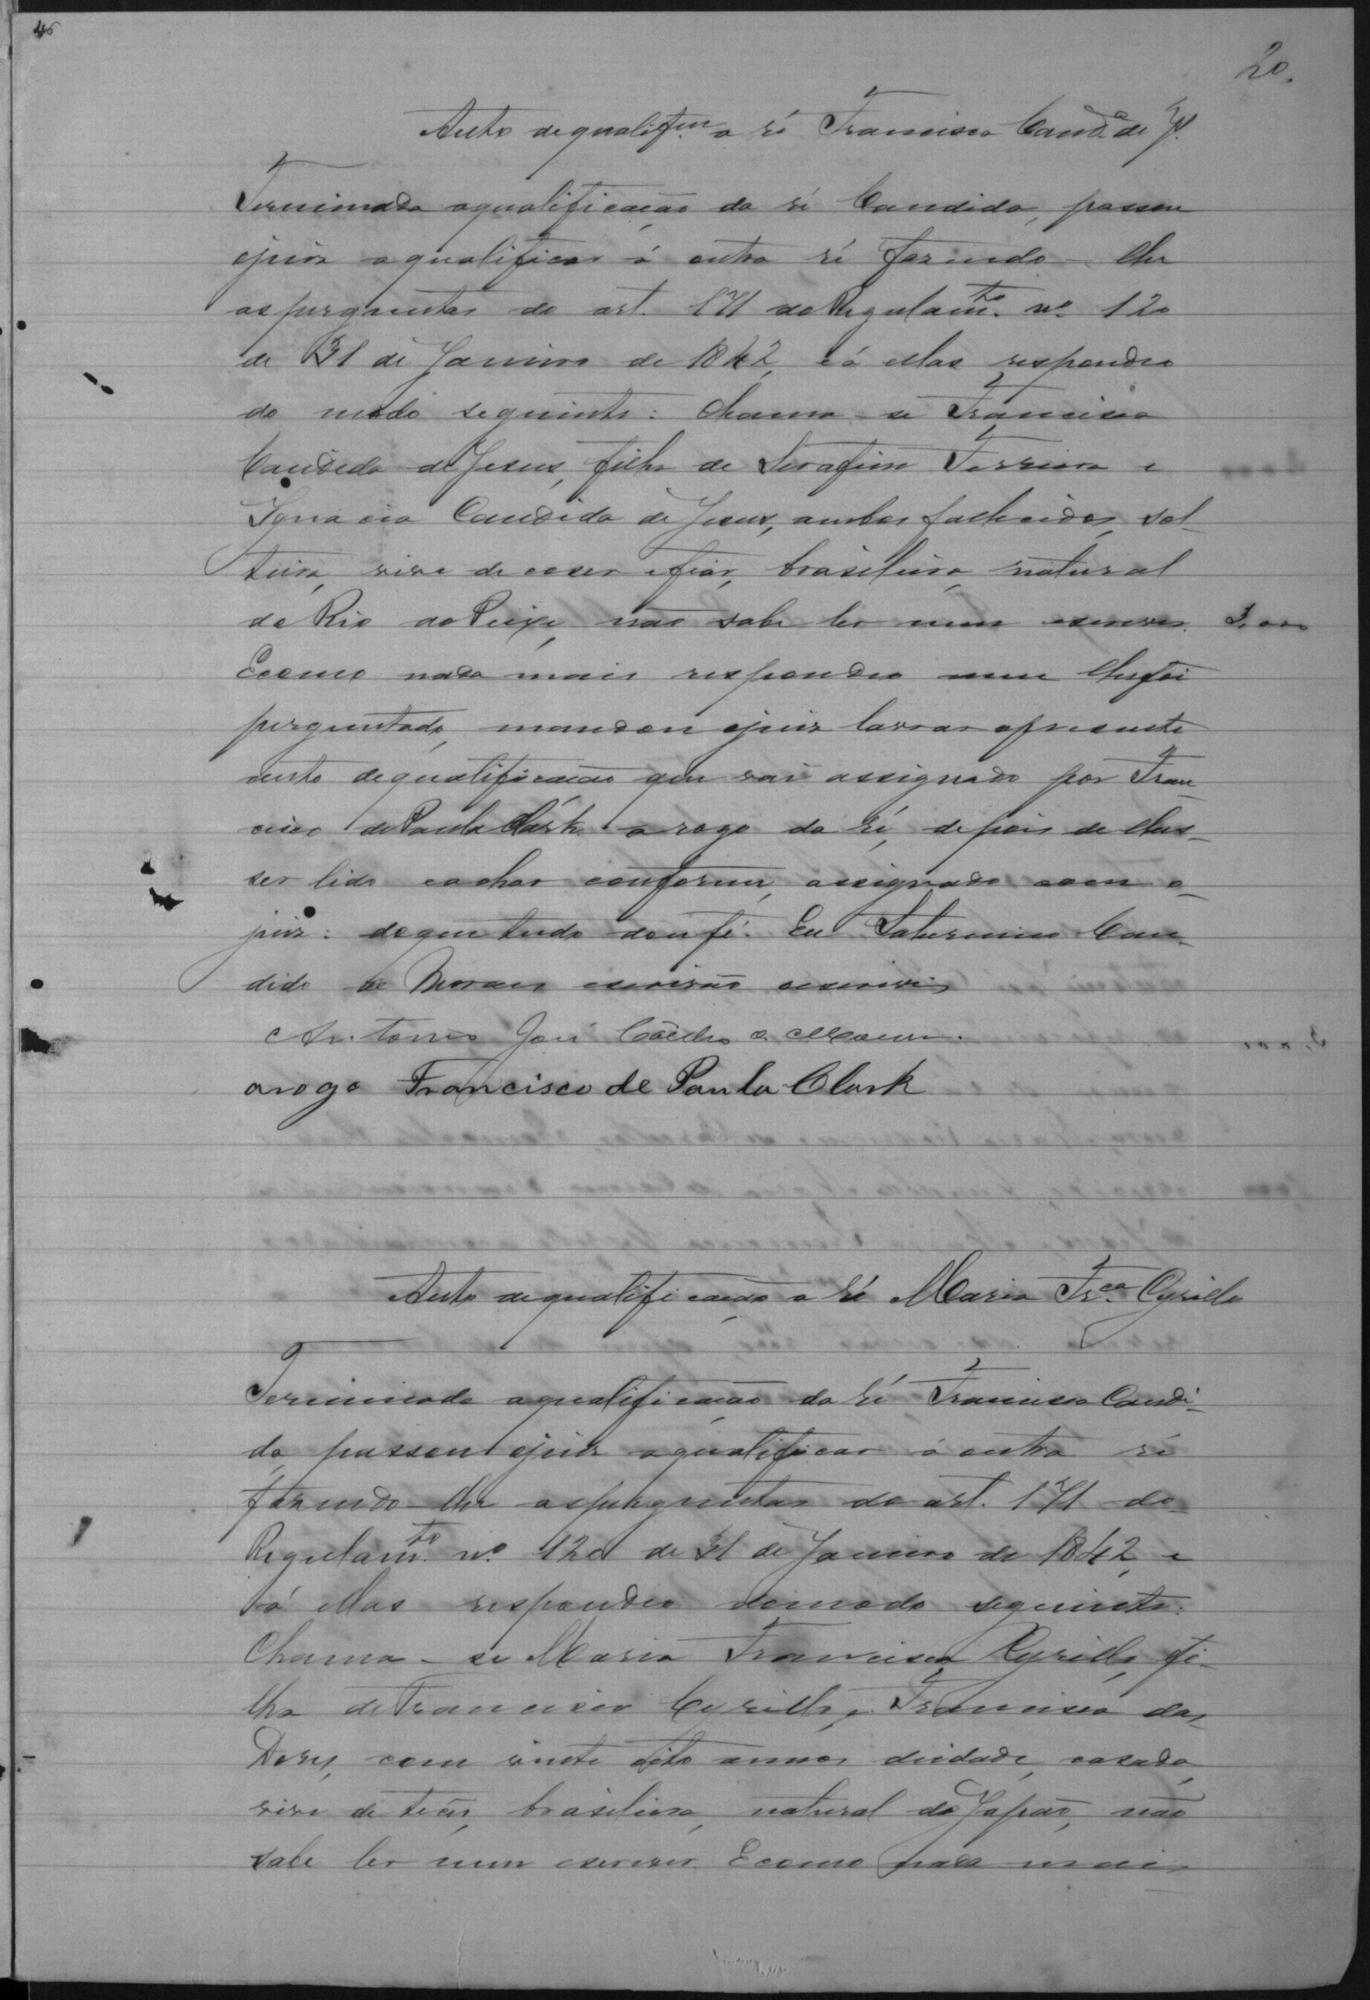 20.
Auto de qualifcm a ré Francisca Candª de J.
Terminada a qualificação da ré Candida, passou
o juiz a qualificar á outra ré fazendo-lhe
as perguntas do art. 171 do Regulamto. nº 120
de 31 de Janeiro de 1842, e á ellas respondeo
do modo seguinte: Chama-se Francisca
Candida de Jesus, filha de Serafim Ferreira e
Ignacia Candida de Jesus, ambos fallecidos, sol-
teira, vive de coser e fiar, brasileira, natural
do Rio do Peixe, não sabe ler nem escrever. 3,000
E como nada mais respondeo nem lhe foi
perguntado, mandou o juiz lavrar o presente
auto de qualificação que vai assignado por Fran-
cisco de Paula Clark a rogo da ré, depois de lhes
ser lido e achar conforme, assignado com o
juiz: do que tudo dou fé. Eu Saturnino Can-
dido de Moraes escrivão escrevi
Antonio José Coêlho de Moura.
arogo Francisco de Paula Clark
Auto de qualificação a ré Maria Frca. Cyrillo
Terminada a qualificação da ré Francisca Candi-
da, passou o juiz a qualificar á outra ré
fazendo-lhe as perguntas do art. 171 do
Regulamto. nº 120 de 31 de Janeiro de 1842, e
á ellas respondeo do modo seguinte:
Chama-se Maria Francisca Cyrillo, fi-
lha de Francisco Cyrillo, e Francisca das
Dores, com vinte oito annos de idade, casada,
vive de tecer, brasileira, natural do Japão, não
sabe ler nem escrever. E como nada mais